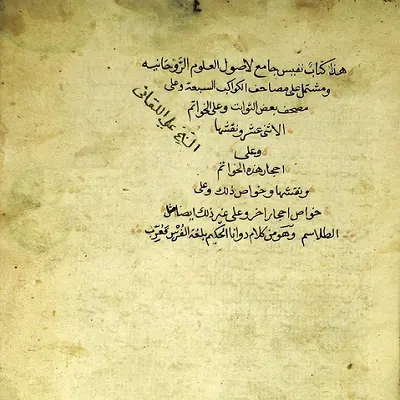 هذا كتاب نفيس جامع لاصول العلوم الروحانيه
ومشتمل على مصاحف الكواكب السبعة وعلى
مصحف بعض الثوابت وعلى الخواتم
الاثنى عشر ونقشها
وعلى
احجار هذه الخواتم
ونقشها وخواص ذلك وعلى
خواص احجار اخر وعلى غير ذلك ايضا مثل
الطلاسم وهو من كلام دوانا الحكيم بلغة الفرس فعرب
الشيخ علي اللقاني